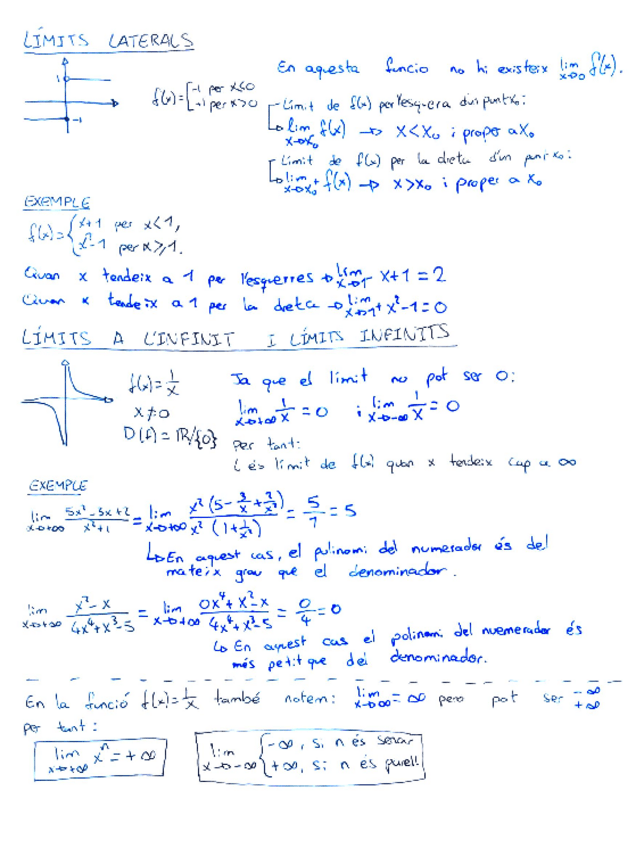 LÍMITS LATERALS
En aquesta funcio no hi existeix lim x→0 f(x).
1
-1
f(x)=[-1 per x<0
+1 per x>0
Límit de f(x) per l'esquerra d'un punt x₀:
lim x→x₀⁻ f(x) → x<x₀ i proper a x₀
Límit de f(x) per la dreta d'un punt x₀:
lim x→x₀⁺ f(x) → x>x₀ i proper a x₀
EXEMPLE
f(x)={x+1 per x<1,
x²-1 per x≥1.
Quan x tendeix a 1 per l'esquerres → lim x→1⁻ x+1=2
Quan x tendeix a 1 per la dreta → lim x→1⁺ x²-1=0
LÍMITS A L'INFINIT I LÍMITS INFINITS
f(x)=1/x
x≠0
D(f)=IR/{0}
Ja que el límit no pot ser 0:
lim x→+∞ 1/x=0 i lim x→-∞ 1/x=0
per tant:
L és límit de f(x) quan x tendeix cap a ∞
EXEMPLE
lim x→+∞ 5x²-3x+2/x²+1 = lim x→+∞ x²(5-3/x+2/x²)/x²(1+1/x²) = 5/1=5
↳ En aquest cas, el pulinomi del numerador és del
mateix grau que el denominador.
lim x→+∞ x²-x/4x⁴+x³-5 = lim x→+∞ 0x⁴+x²-x/4x⁴+x³-5 = 0/4=0
↳ En aquest cas el polinomi del nuemerador és
més petit que del denominador.
En la funció f(x)=1/x també notem: lim x→∞=∞ pero pot ser -∞ +∞
per tant:
lim x→+∞ xⁿ=+∞
lim x→-∞ {-∞, si n és senar
+∞, si n és parell!